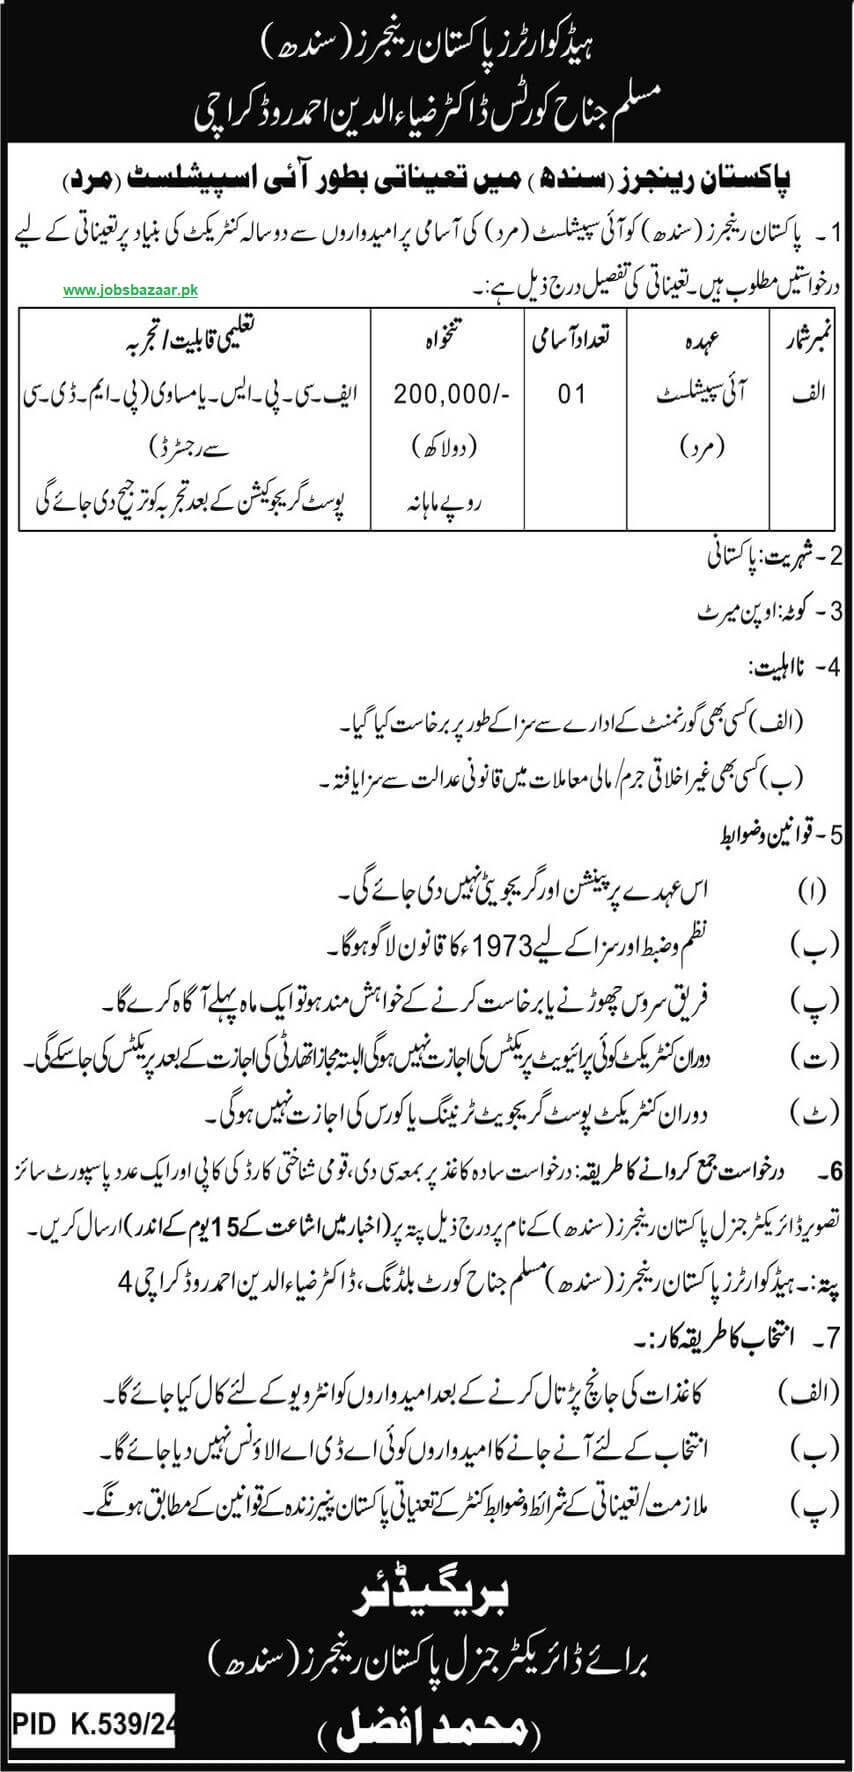 ہیڈ کوارٹرز پاکستان رینجرز (سندھ)
مسلم جناح کورٹس ڈاکٹر ضیاء الدین احمد روڈ کراچی
پاکستان رینجرز (سندھ) میں تعیناتی بطور آئی اسپیشلسٹ (مرد)
1۔ پاکستان رینجرز (سندھ) کو آئی سپیشلسٹ (مرد) کی آسامی پر امیدواروں سے دو سالہ کنٹریکٹ کی بنیاد پر تعیناتی کے لیے
درخواستیں مطلوب ہیں۔ تعیناتی کی تفصیل درج ذیل ہے:۔
www.jobsbazaar.pk
نمبر شمار عہدہ تعداد آسامی تنخواہ تعلیمی قابلیت/تجربہ
الف آئی سپیشلسٹ 01 200,000/- ایف۔سی۔پی۔ایس۔ یا مساوی (پی۔ایم۔ڈی۔سی
(مرد) (دو لاکھ) سے رجسٹرڈ)
روپے ماہانہ پوسٹ گریجوکیشن کے بعد تجربہ کو ترجیح دی جائے گی
2۔ شہریت: پاکستانی
3۔ کوٹہ: اوپن میرٹ
4۔ نااہلیت:
(الف) کسی بھی گورنمنٹ کے ادارے سے سزا کے طور پر برخاست کیا گیا۔
(ب) کسی بھی غیر اخلاقی جرم/ مالی معاملات میں قانونی عدالت سے سزا یافتہ۔
5۔ قوانین وضوابط
(ا) اس عہدے پر پینشن اور گریجویٹی نہیں دی جائے گی۔
(ب) نظم و ضبط اور سزا کے لیے 1973ء کا قانون لاگو ہوگا۔
(پ) فریق سروس چھوڑنے یا برخاست کرنے کے خواہش مند ہو تو ایک ماہ پہلے آگاہ کرے گا۔
(ت) دوران کنٹریکٹ کوئی پرائیویٹ پریکٹس کی اجازت نہیں ہوگی البتہ مجاز اتھارٹی کی اجازت کے بعد پریکٹس کی جا سکے گی۔
(ٹ) دوران کنٹریکٹ پوسٹ گریجویٹ ٹریننگ یا کورس کی اجازت نہیں ہوگی۔
6۔ درخواست جمع کروانے کا طریقہ: درخواست سادہ کاغذ پر بمعہ سی دی، قومی شناختی کارڈ کی کاپی اور ایک عدد پاسپورٹ سائز
تصویر ڈائریکٹر جنرل پاکستان رینجرز (سندھ) کے نام پر درج ذیل پتہ پر (اخبار میں اشاعت کے 15 یوم کے اندر) ارسال کریں۔
پتہ:۔ ہیڈ کوارٹرز پاکستان رینجرز (سندھ) مسلم جناح کورٹ بلڈنگ، ڈاکٹر ضیاء الدین احمد روڈ کراچی 4
7۔ انتخاب کا طریقہ کار:۔
(الف) کاغذات کی جانچ پڑتال کرنے کے بعد امیدواروں کو انٹرویو کے لئے کال کیا جائے گا۔
(ب) انتخاب کے لئے آنے جانے کا امیدواروں کوئی اے ڈی اے الاؤنس نہیں دیا جائے گا۔
(پ) ملازمت/ تعیناتی کے شرائط و ضوابط کنٹر کے تعنیاتی پاکستان پنیرزندہ کے قوانین کے مطابق ہونگے۔
بریگیڈئر
برائے ڈائریکٹر جنرل پاکستان رینجرز (سندھ)
(محمد افضل)
PID K.539/24